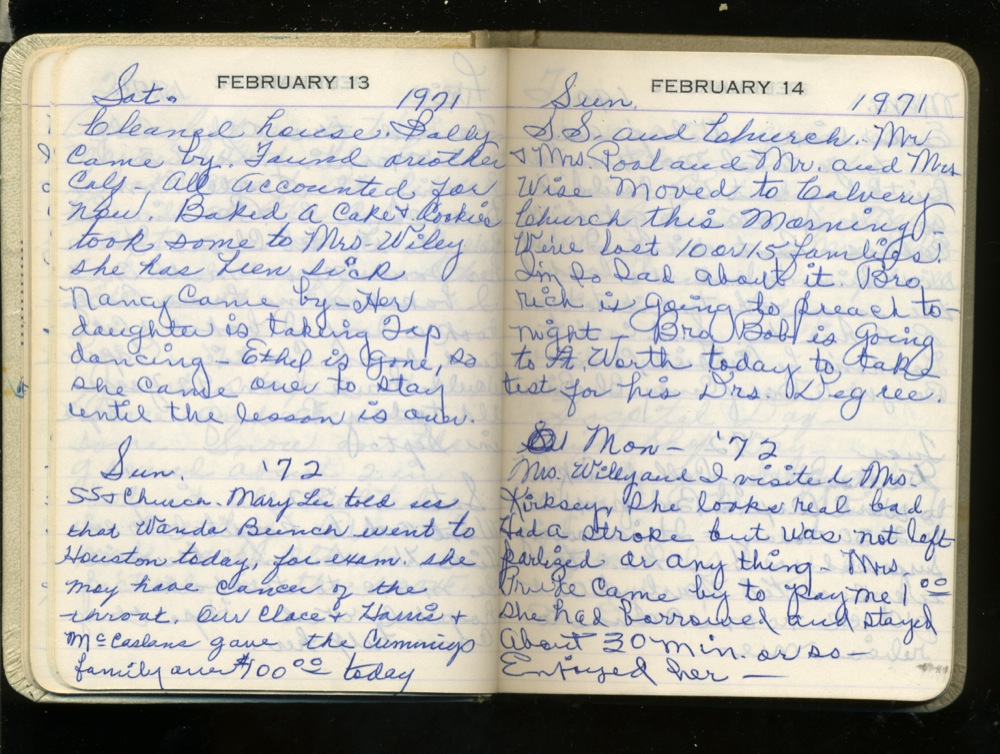 FEBRUARY 13
Sat. 1971
Cleaned house. Dolly
came by. Found another
Calf - All accounted for
now. Baked a cake & Cookies
took some to Mrs. Wiley
she has been sick
Nancy Came by - Her
daughter is taking Tap
dancing - Ethel is gone, so
she came over to stay
until the lesson is over.
Sun. '72
SS & Church. Mary Lee told us
that Wanda Bunch went to
Houston today, for exam. she
may have cancer of the
throat. Our Class & Harris &
McCaslans gave the Cummings
family over $100.00 today
FEBRUARY 14
Sun. 1971
S.S. and Church. Mr
& Mrs. Pool and Mr. and Mrs
Wise Moved to Calvery
Church this Morning -
We've lost 10 or 15 families!
I'm so sad about it. Bro
rich is going to preach to-
night - Bro Bob is Going
to Ft. Worth today to take
test for his Drs. Degree.
Mon - '72
Mrs. Wiley and I visited Mrs.
Kirksey, she looks real bad
Had a stroke but was not left
parlized or any thing - Mrs.
Came by to pay me 1.00
she had borrowed and stayed
About 30 min. or so -
Enjoyed her -